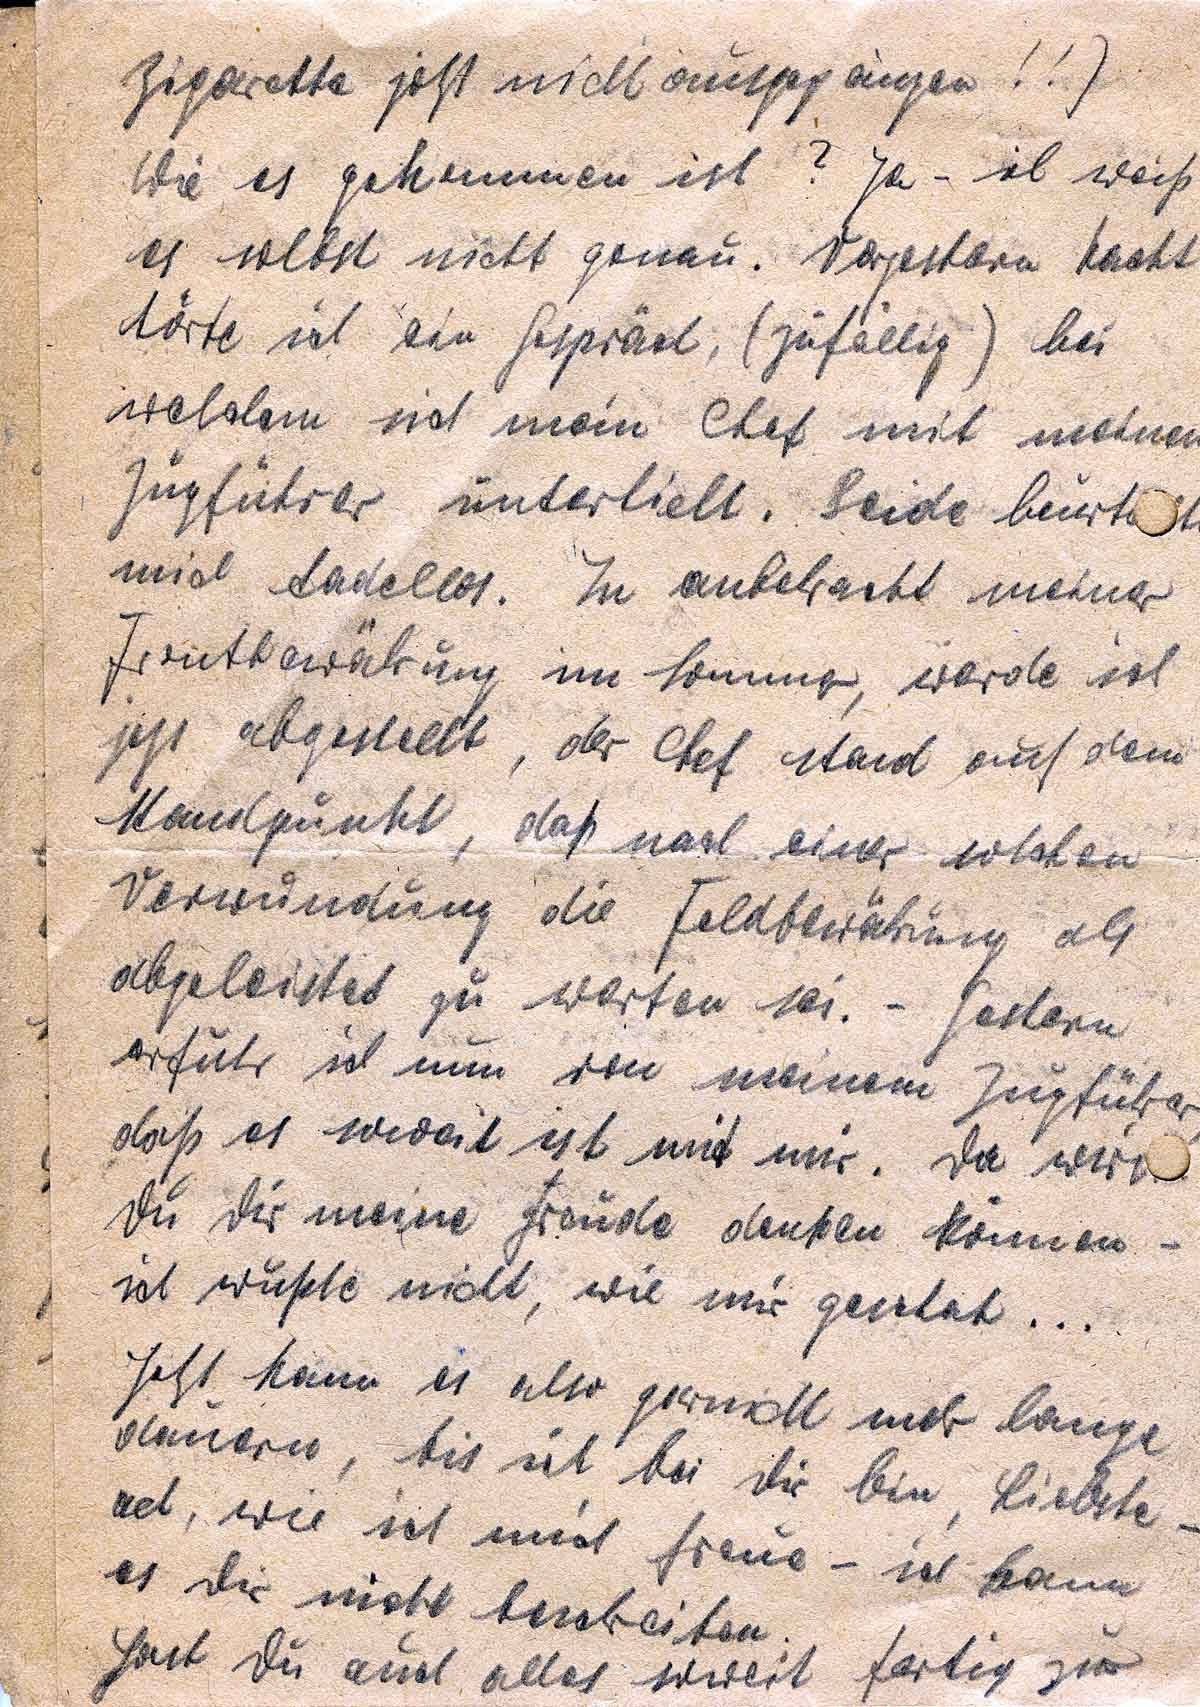 Zigarette jetzt nicht ausgegangen!!)
Wie es gekommen ist? Ja - ich weiß
es selbst nicht genau. Vorgestern Nacht
hörte ich ein Gespräch, (zufällig) bei
welchem sich mein Chef mit meinem
Zugführer unterhielt. Beide beurteilt
mich tadellos. In anbetracht meiner
Frontbewährung im Sommer, werde ich
jetzt abgestellt, der Chef stand auf dem
Standpunkt, daß nach einer solchen
Verwundung die Feldbewährung als
abgeleistet zu werten sei. - Gestern
erfuhr ich nun von meinem Zugführer,
daß es soweit ist mit mir. Da wirst
Du Dir meine Freude denken können -
ich wußte nicht, wie mir geschah...
Jetzt kann es also garnicht mehr lange
dauern, bis ich bei Dir bin, Liebste -
ach, wie ich mich freue - ich kann
es Dir nicht beschreiben.
Hast Du auch alles soweit fertig zur